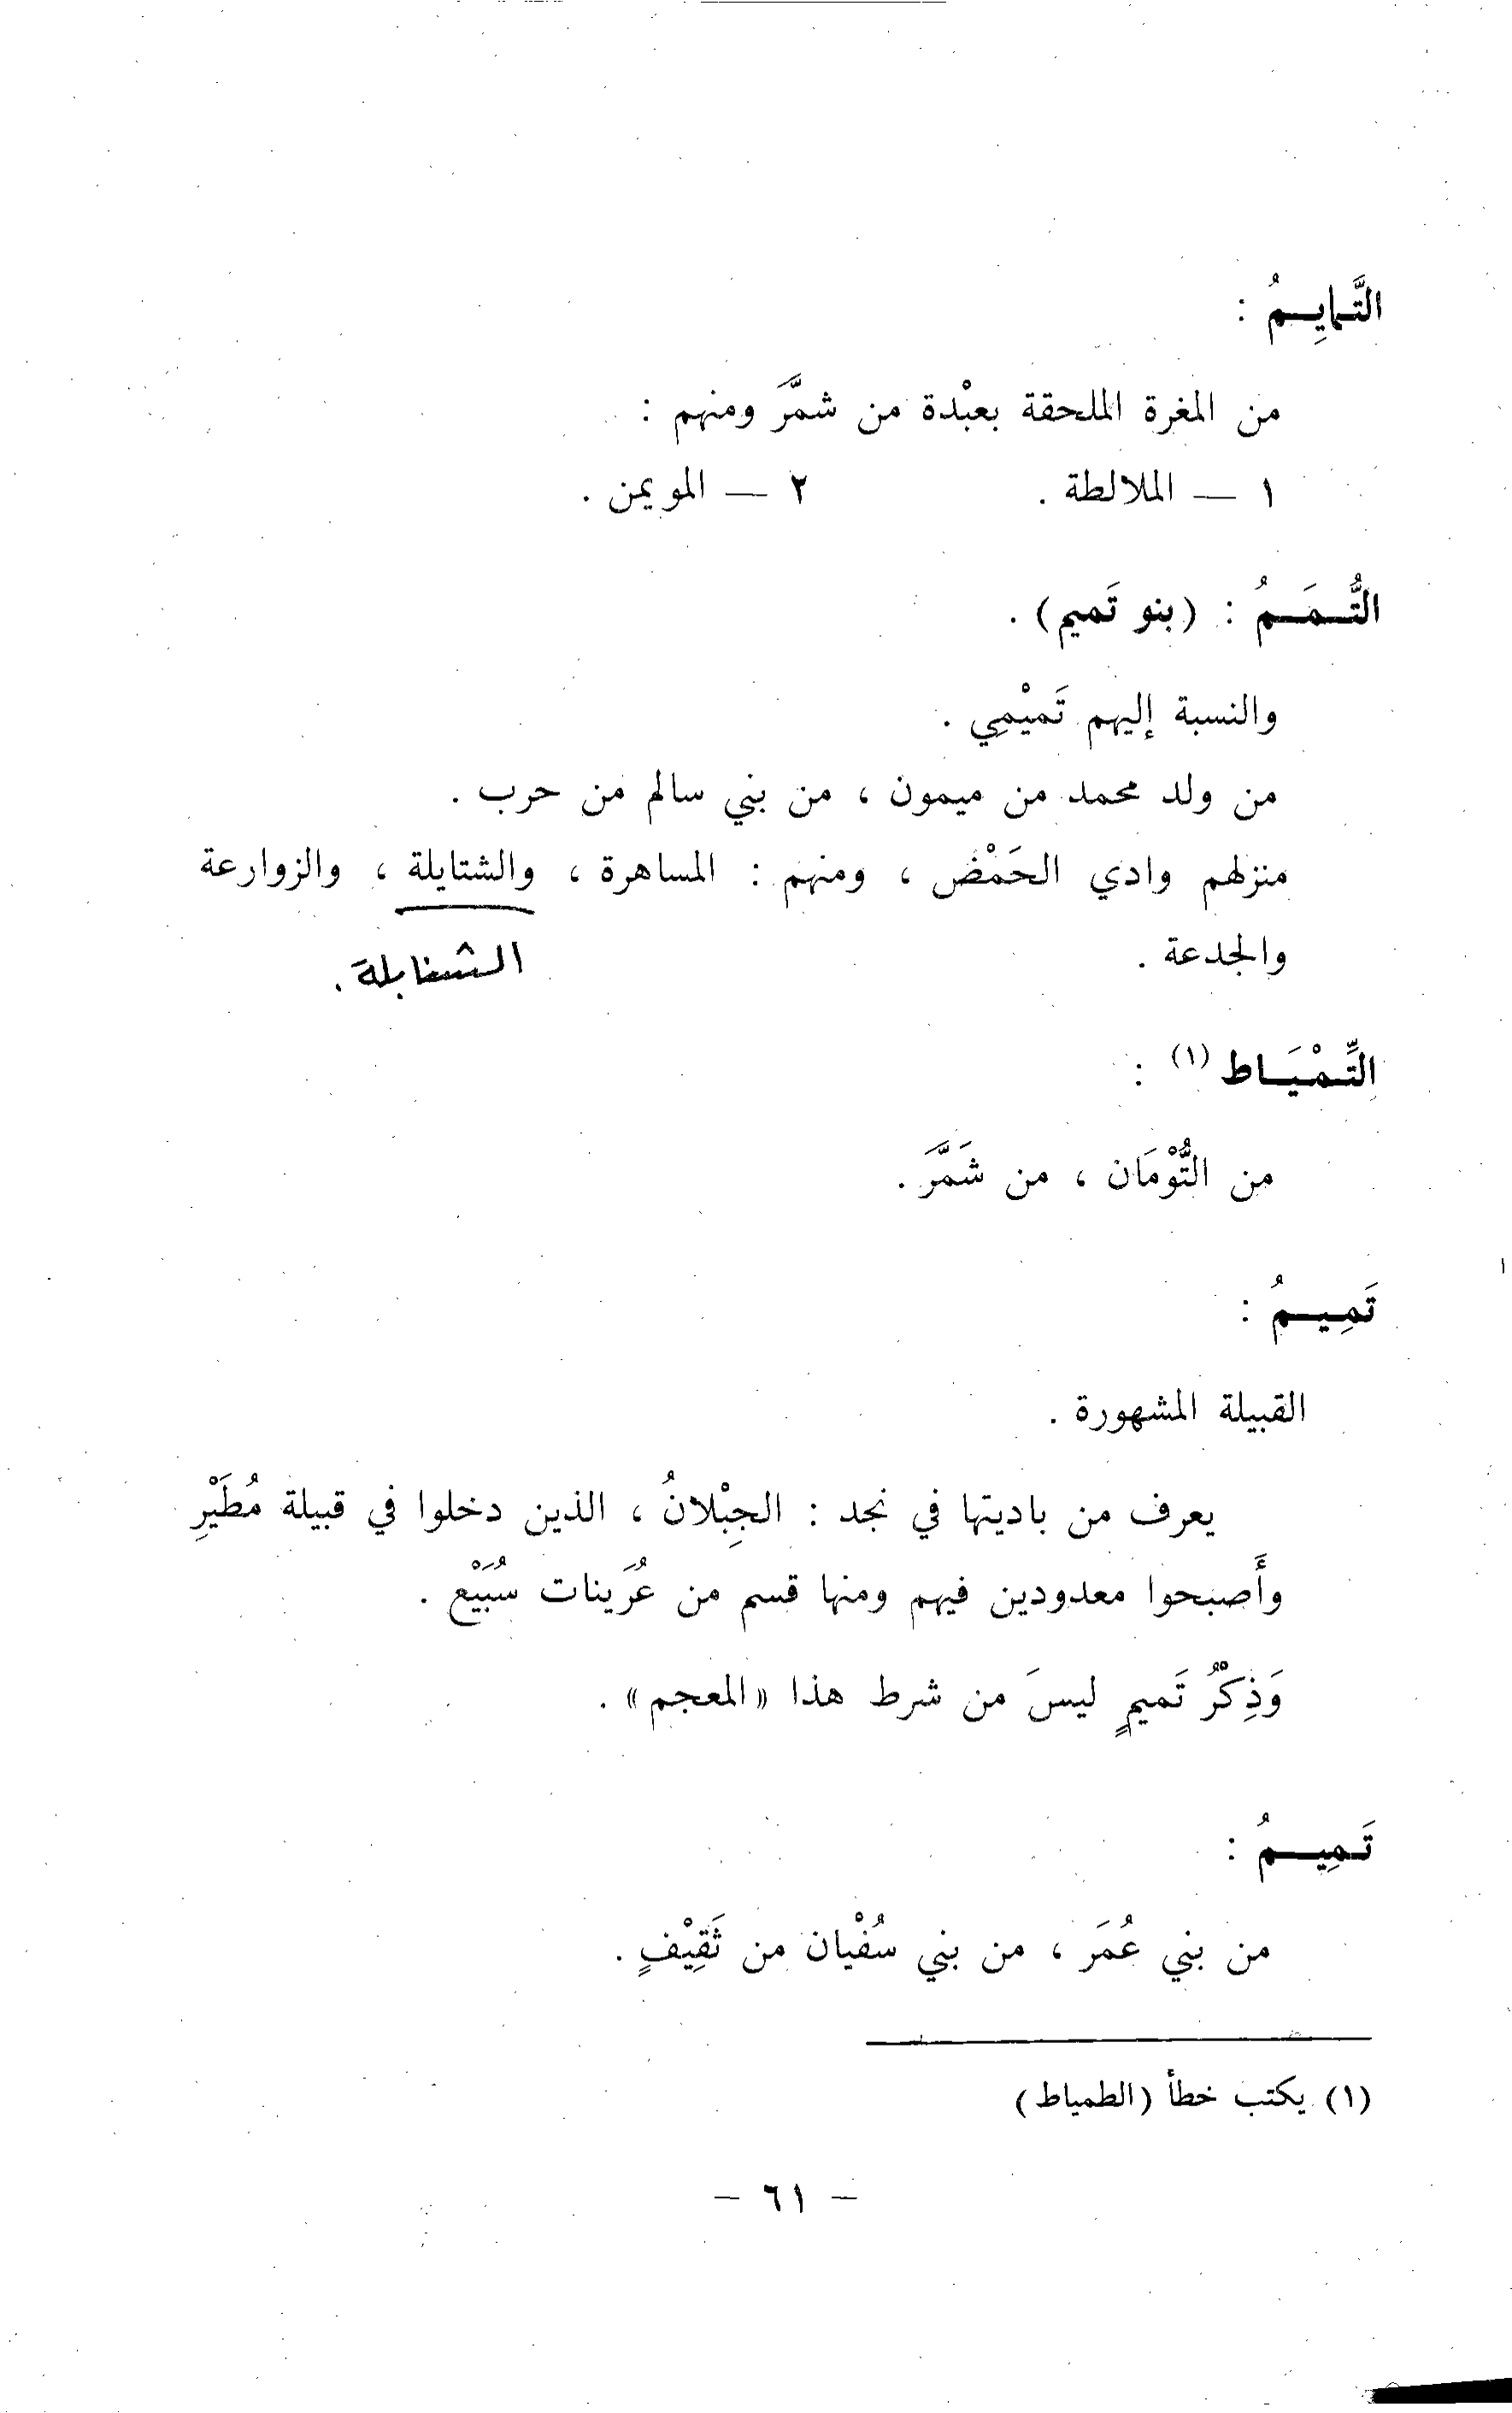 التَّمايِمُ :
من المغرة الملحقة بعبْدة من شمَّرَ ومنهم :
١ — الملالطة . ٢ — المويمن .
التُّمَمُ : (بنو تَميم) .
والنسبة إليهم تَميْمِي .
من ولد محمد من ميمون ، من بني سالم من حرب .
منزلهم وادي الحَمْض ، ومنهم : المساهرة ، والشتايلة ، والزوارعة
والجدعة .
الشنابلة .
التِّمْيَاط (١) :
من التُّوْمَان ، من شَمَّرَ .
تَمِيمُ :
القبيلة المشهورة .
يعرف من باديتها في نجد : الجِبْلانُ ، الذين دخلوا في قبيلة مُطَيْرِ
وأَصبحوا معدودين فيهم ومنها قسم من عُرَينات سُبَيْع .
وَذِكْرُ تَميمٍ ليسَ من شرط هذا «المعجم» .
تَمِيمُ :
من بني عُمَر ، من بني سُفْيان من ثَقِيْفٍ .
(١) يكتب خطأ (الطمياط)
– ٦١ –